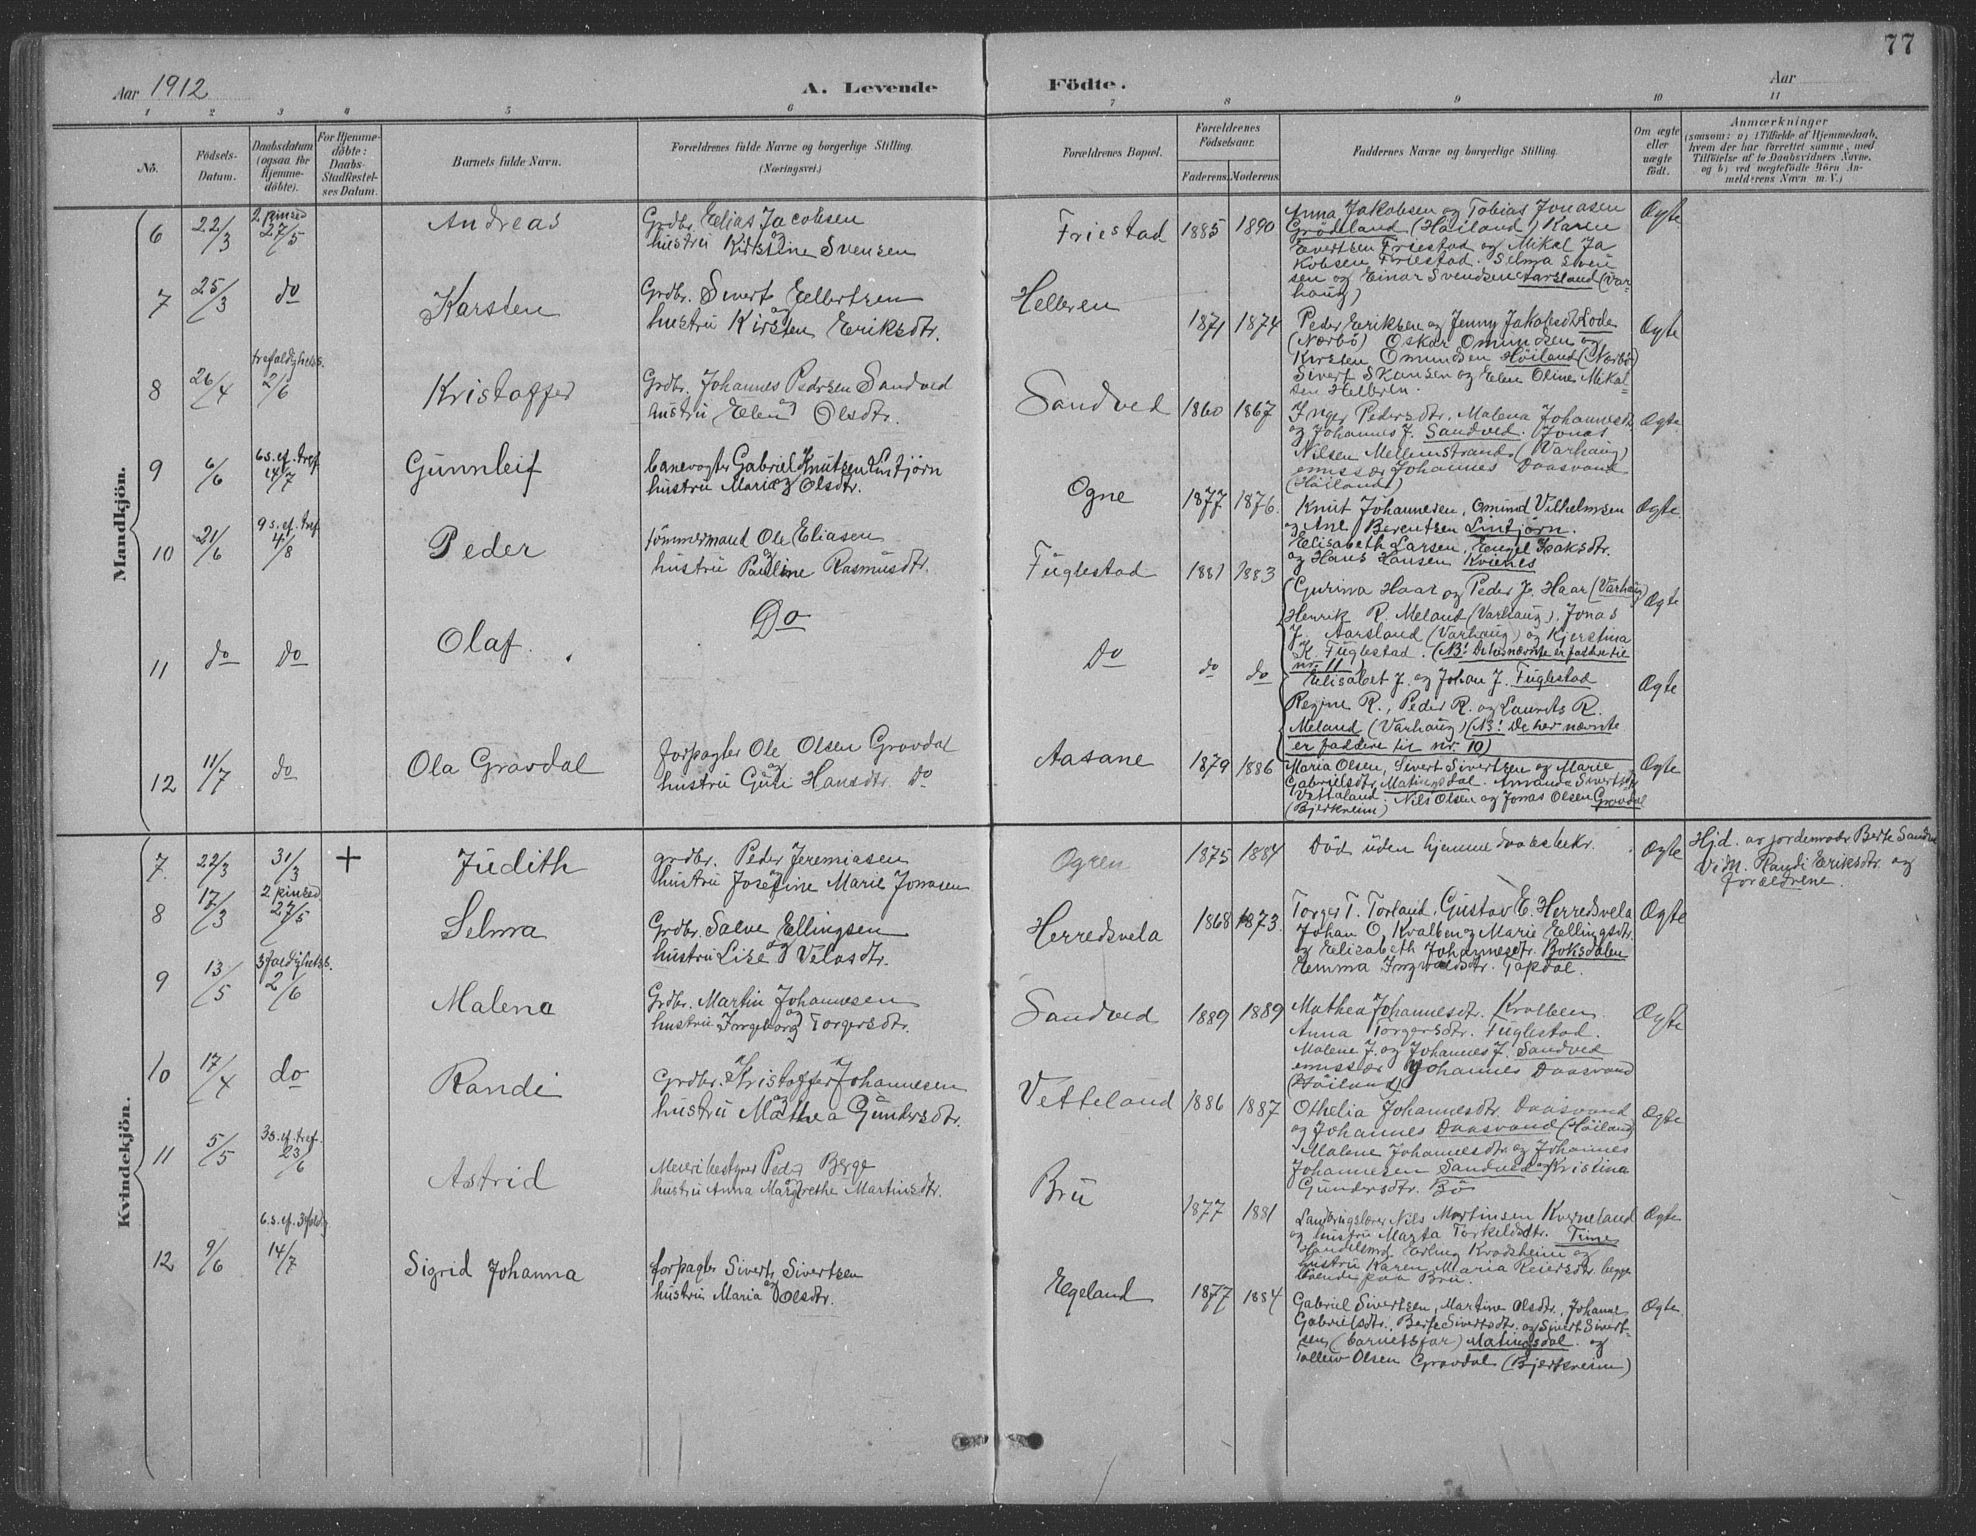 77
Aar 1912
A. Levende
Födte.
Aar
1 2 3 4 5 6 7 8 9 10 11
No.
Födsels-Datum.
Daabsdatum (ogsaa for Hjemmedöbte).
For Hjemmedöbte: Daabs-Stadfæstelses Datum.
Barnets fulde Navn.
Forældrenes fulde Navne og borgerlige Stilling.
(Næringsvei.)
Forældrenes Bopæl.
Forældrenes Födselsaar.
Faderens. Moderens.
Faddernes Navne og borgerlige Stilling.
Om ægte eller uægte födt.
Anmærkninger
(saasom: a) i Tilfælde af Hjemmedaab,
hvem der har forrettet samme, med
Tilföielse af to Daabsvidners Navne,
og b) ved uægtefödte Börn An-
melderens Navn m. V.)
Mandkjön.
6 22/3 2 pinsed 27/5 Andreas
Grdbr. Elias Jacobsen
og
hustru Kirstine Svensen
Friestad 1885 1890
Anna Jakobsen og Tobias Jonasen
Grödeland (Höiland) Karen
Evertsen Friestad og Mikal Ja
kobsen Friestad. Selma Sven
sen og Einar Svendsen Aarsland (Var-
haug)
Ægte
7 25/3 do Karsten
Grdbr. Sivert Ellertsen
og
hustru Kirsten Eriksdtr.
Helleren 1871 1874
Peder Eriksen og Jenny Jakobsdtr Lode
(Nærbö) Oskar Omundsen og
Kirsten Omundsen Höiland (Nærbö)
Sivert Skansen og Elen Oline Mikal-
sen Helleren.
Ægte
8 26/4 trefoldigheds. 2/6 Kristoffer
Grdbr. Johannes Pedersen Sandved
og
hustru Elen Olsdtr.
Sandved 1860 1867
Inger Pedersdtr. Malena Johannesdtr
og Johannes J. Sandved. Jonas
Nilsen Mellemstrand (Varhaug)
emissær Johannes Daasvand
(Höiland)
Ægte
9 6/6 6 s. ef. tref. 14/7 Gunnleif
banevogter Gabriel Knutsen Lintjörn
hustru Maria og Olsdtr.
Ogne 1877 1876.
Knut Johannesen, Omund Vilhelmsen
og Ane Berentsen Lintjörn.
Elisabeth Larsen, Engel Isaksdtr.
og Hans Hansen Kvienes
Ægte
10 21/6 9 s. ef. tref 4/8 Peder
tömmermand Ole Eliasen
og
hustru Pauline Rasmusdtr.
Fuglestad 1881 1883
Gurina Haar og Peder J. Haar (Varhaug)
Henrik R. Meland (Varhaug), Jonas
J. Aarsland (Varhaug) og Kjerstina
K. Fuglestad. (NB! De her nævnte er faddere til
nr. 11)
Ægte
11 do do Olaf.
Do
Do do do
Elisabet J. og Johan J. Fuglestad
Regine R., Peder R. og Laurits R.
Meland (Varhaug) (NB! De her nævnte
er faddere til nr. 10)
Ægte
12 11/7 do Ola Gravdal
forpagter Ole Olsen Gravdal
og
hustru Guri Hansdtr. do
Aasane 1879 1886
Maria Olsen, Sivert Sivertsen og Marie
Gabrielsdtr. Matingsdal. Amanda Sivertsdtr
Vettaland. Nils Olsen og Jonas Olsen Gravdal
(Bjerkreim)
Ægte
Kvindekjön.
7. 22/3 31/3 + Judith
grdbr. Peder Jeremiasen
og
hustru Josefine Marie Jonasen
Ogren 1875 1884
Död uden hjemmedaabsbekr.
Ægte
Hjd. av jordemodr Berte Sandve
Vidn. Randi Eriksdtr. og
forældrene.
8 17/3 2 pinsed. 27/5 Selma
Grdbr. Salve Ellingsen
og
hustru Lise Velasdtr.
Herredsvela 1868 1873.
Torger T. Torland, Gustav E. Herredsvela
Johan O. Kvalben og Marie Ellingsdtr
og Elizabeth Johannesdtr. Boksdalen
Emma Ingvaldsdtr. Tapdal.
Ægte
9 13/5 3foldigheds. 2/6 Malena
Grdbr. Martin Johannesen
og
hustru Ingeborg Torgersdtr.
Sandved 1889 1889
Mathea Johannesdtr. Kvalben.
Anna Torgersdtr. Fuglestad.
Malene J. og Johannes J. Sandved
emissær Johannes Daasvand
(Höiland)
Ægte
10 17/4 do Randi
Grdbr. Kristoffer Johannesen
og
hustru Mathea Gundersdtr.
Vetteland 1886 1887
Othelia Johannesdtr. Daasvand
og Johannes Daasvand (Höiland)
Malene Johannesdtr og Johannes
Johannesen Sandved og Kristina
Gundersdtr. Bö
Ægte
11 5/5 3 s. ef. tref. 23/6 Astrid
Meieribestyrer Peder Berge
og
hustru Anna Margrethe Martinsdtr.
Bru 1877 1881
Landbrugslærer Nils Martinsen Kverneland
og hustru Marta Torkelsdtr. Time
Handelsmd. Erling Krodsheim og
hustru Karen Maria Reiersdtr. begge
boende paa Bru.
Ægte
12 9/6 6. s. ef. 3fold. 14/7 Sigrid Johanna
forpagter Sivert Sivertsen
og
hustru Maria Olsdtr.
Egeland 1877 1884
Gabriel Sivertsen, Martine Olsdtr., Johanne
Gabrielsdtr., Berte Sivertsdtr. og Sivert Sivert-
sen (barnetsfar) Matingsdal. og
Tollew Olsen Gravdal (Bjerkreim)
Ægte.